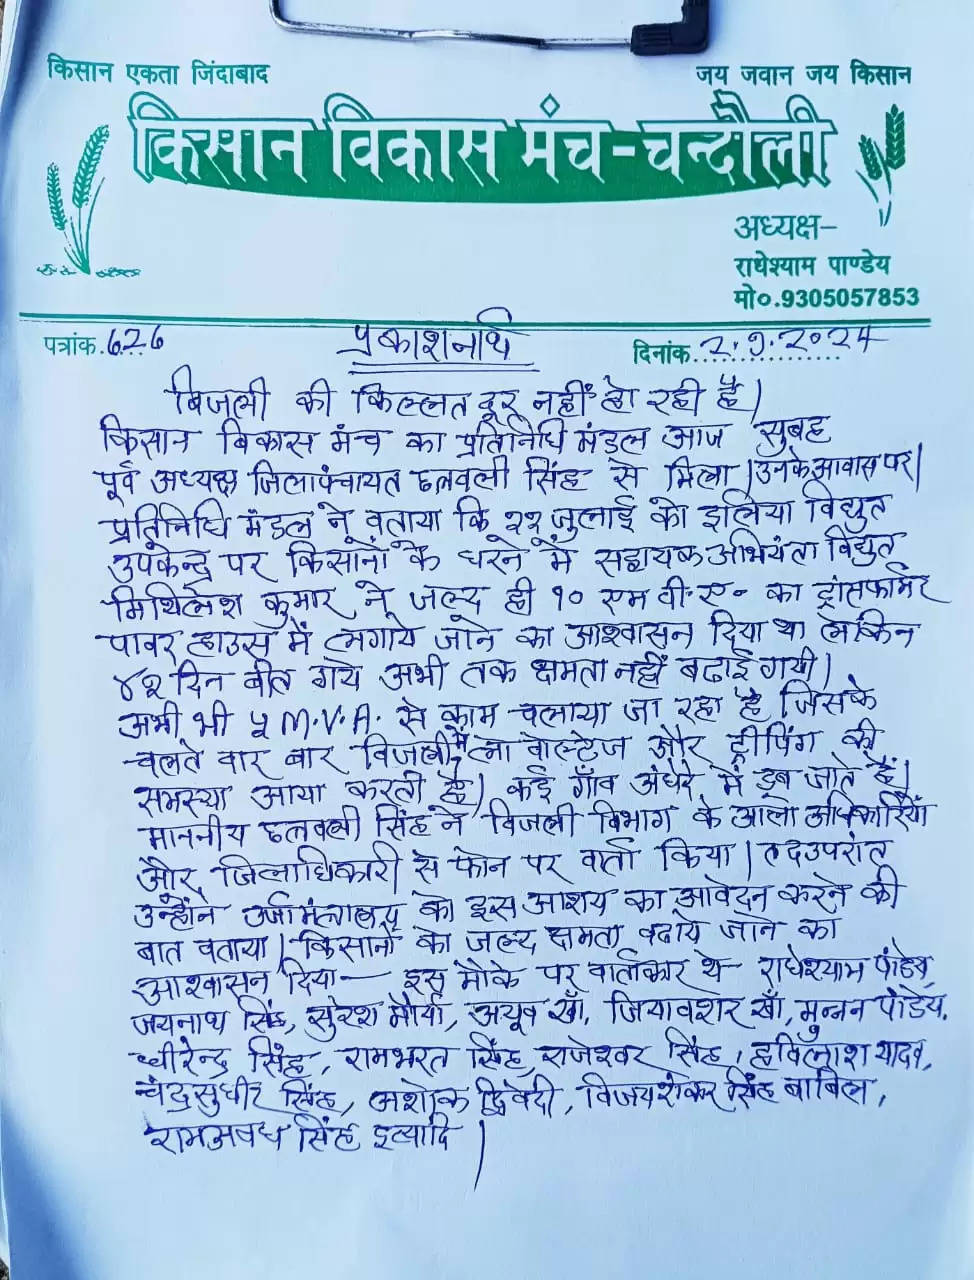 किसान एकता जिंदाबाद
जय जवान जय किसान
किसान विकास मंच-चन्दौली
अध्यक्ष-
राधेश्याम पाण्डेय
मो०.9305057853
पत्रांक.626
प्रकाशनार्थ
दिनांक 2.9.2024
बिजली की किल्लत दूर नहीं हो रही है।
किसान विकास मंच का प्रतिनिधि मंडल आज सुबह
पूर्व अध्यक्ष जिलापंचायत छलवली सिंह से मिला।उनके आवास पर।
प्रतिनिधि मंडल ने वताया कि २२ जुलाई को इलिया विद्युत
उपकेन्द्र पर किसानों के धरने में सहायक अभियंता विद्युत
मिथिलेश कुमार ने जल्द ही १० एम वी॰ए॰ का ट्रांसफार्मर
पावर हाउस में लगाये जाने का आश्वासन दिया था लेकिन
४२ दिन बीत गये अभी तक क्षमता नहीं बढाई गयी।
अभी भी ५ M.V.A. से काम चलाया जा रहा है जिसके
चलते वार बार विजली में लो वोल्टेज और ट्रीपिंग की
समस्या आया करती है। कई गाँव अंधेरे में डूब जाते हैं।
माननीय छलवली सिंह ने विजली विभाग के आला अधिकारियों
और जिलाधिकारी से फोन पर वार्ता किया। तदउपरांत
उन्होंने उर्जामंत्रालय को इस आशय का आवेदन करने की
बात वताया। किसानों को जल्द क्षमता वढाये जाने का
आश्वासन दिया— इस मौके पर वार्ताकार थे- राधेश्याम पांडेय,
जयनाथ सिंह, सुरेश मौर्या, अयूव खाँ, जियावशेर खाँ, मुन्नन पांडेय,
धीरेन्द्र सिंह, रामभरत सिंह, राजेश्वर सिंह, हविलाश यादव,
चंद्रसुधीर सिंह, अशोक द्विवेदी, विजयशंकर सिंह बाबिल,
रामअवध सिंह इत्यादि।